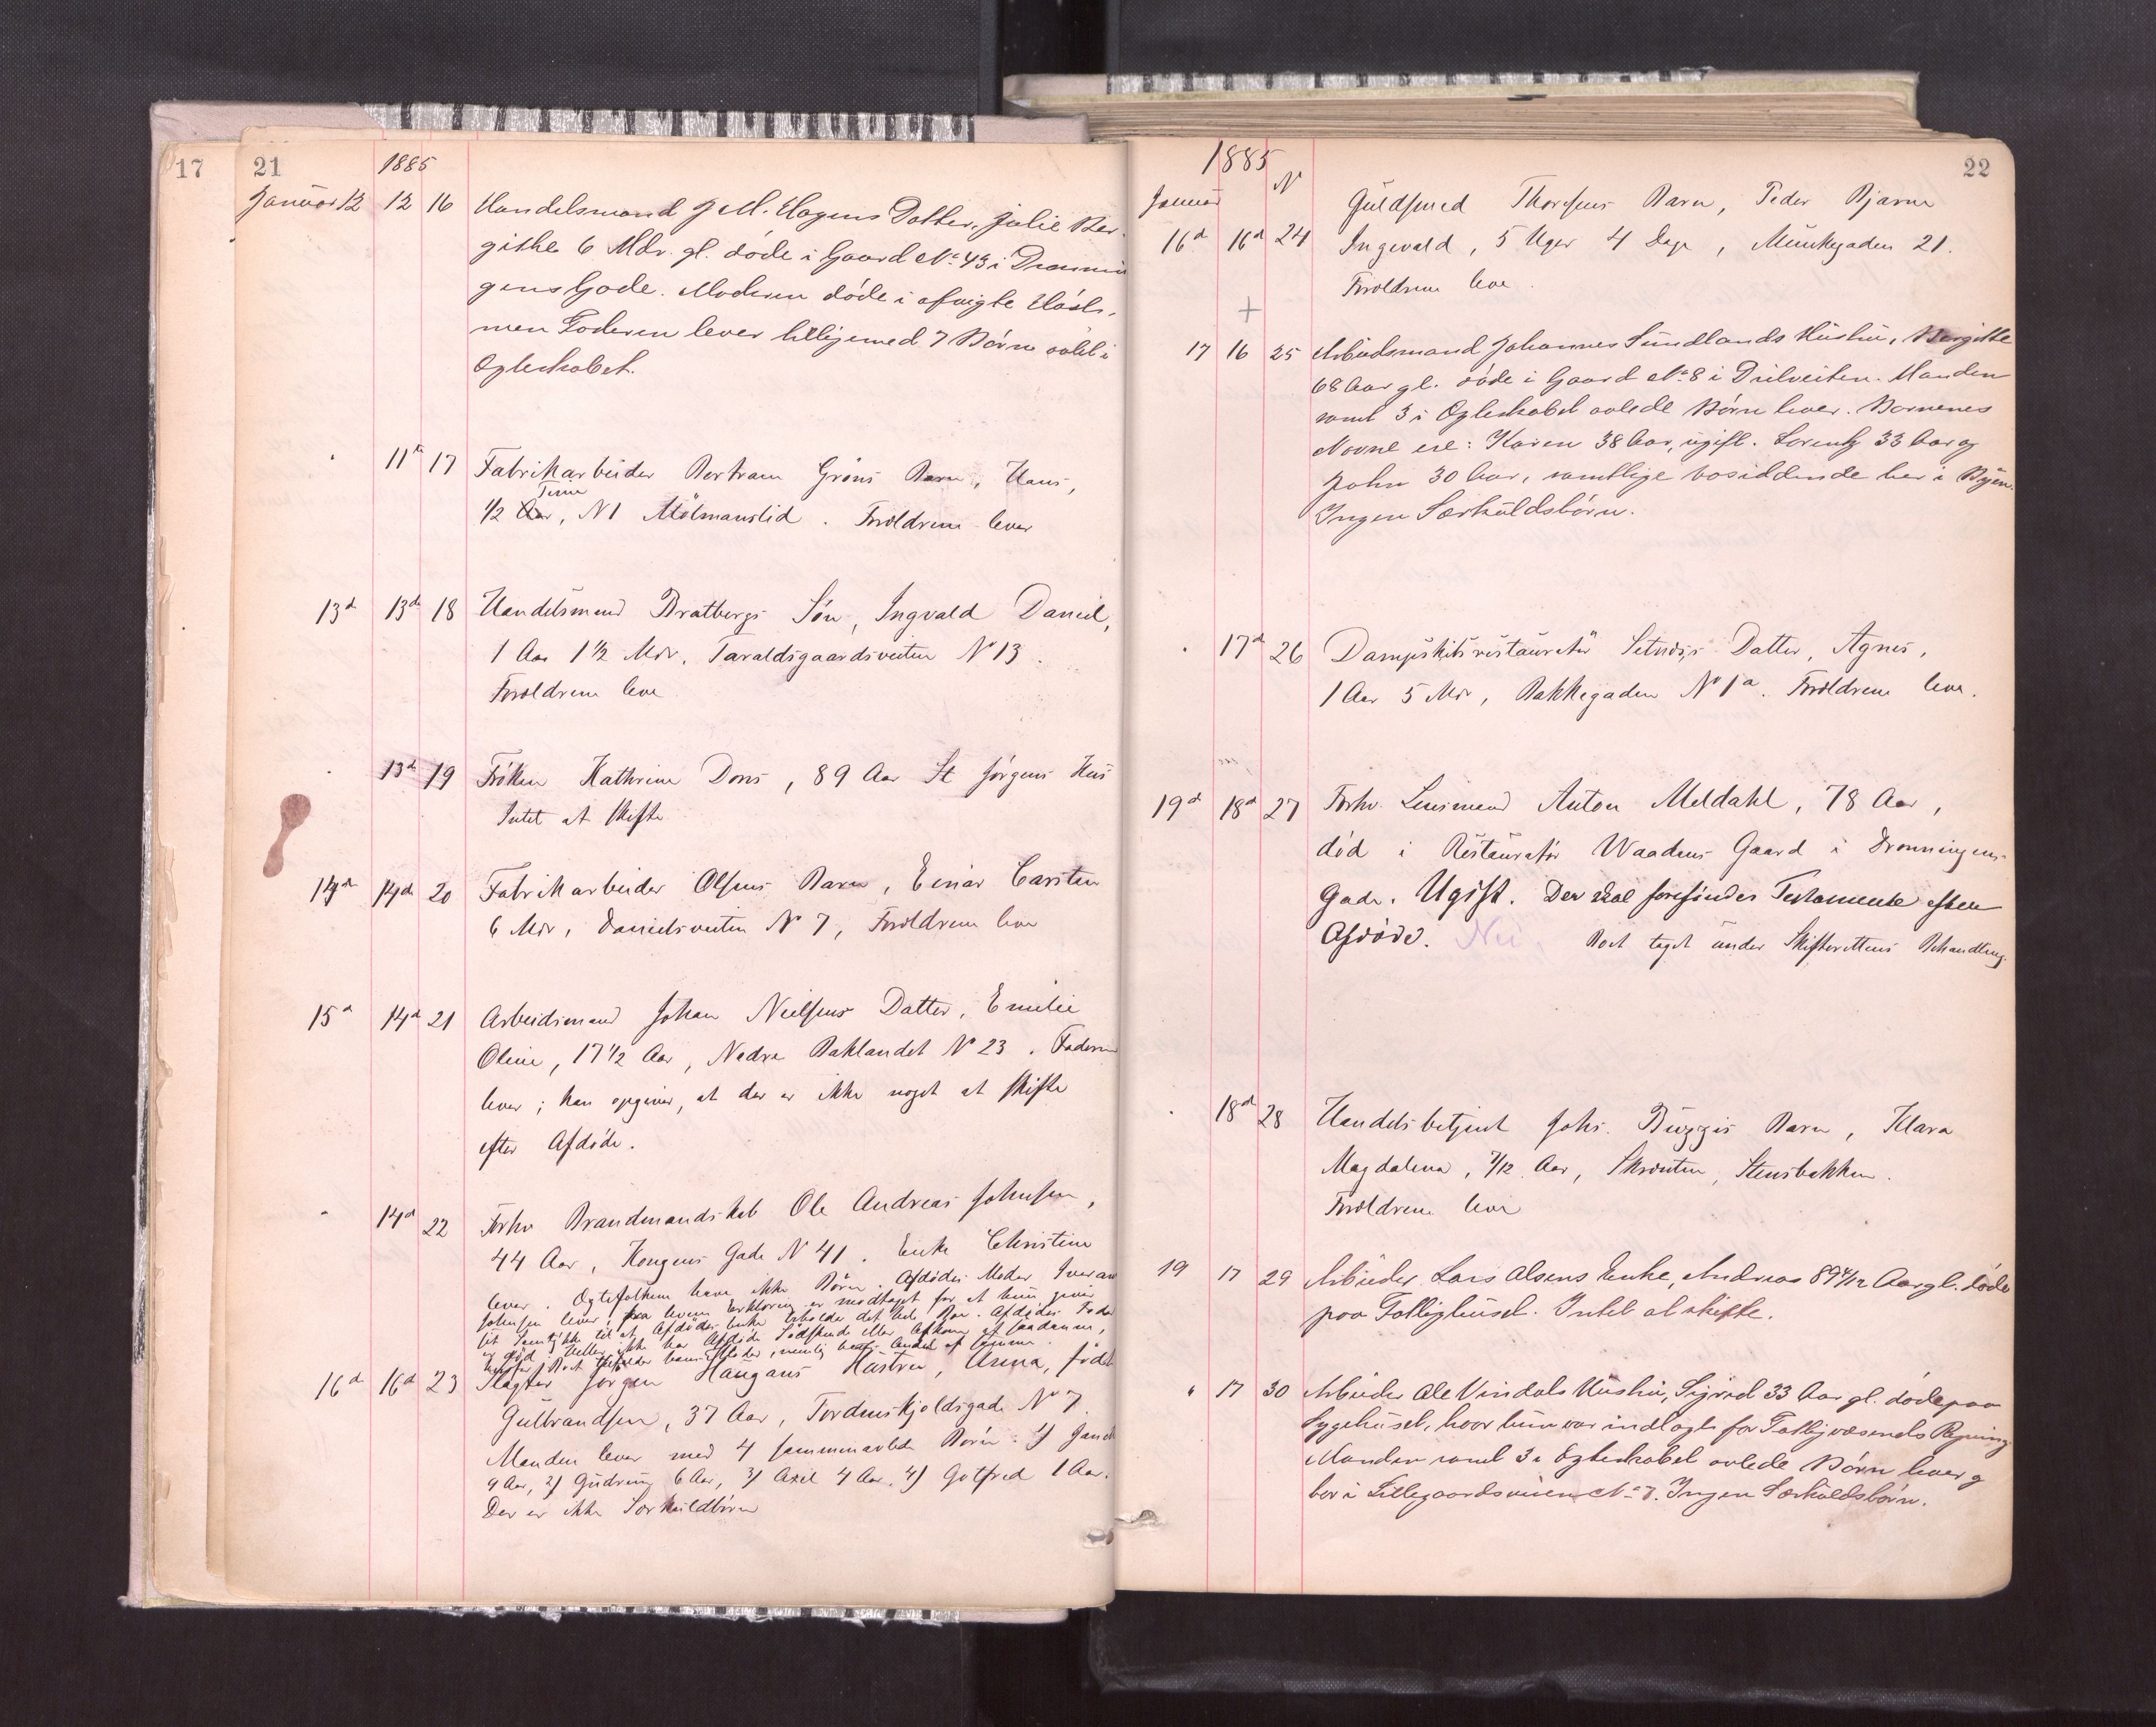 17
21
1885
Januar 12 12 16 Handelsmand J. M. Hagens Datter, Julie Ber-
githe 6 Mdr. gl. døde i Gaard No. 43 i Dronnin
gens Gade. Moderen døde i afvigte Høst,
men Faderen lever tilligemed 7 Børn avlet i
Ægteskabet.
" 11te 17 Fabrikarbeider Bertram Gröns Barn, Hans,
Time
1/2 Aar, N 1 Mölmanslid. Forældrene lever
13d 13de 18 Handelsmand Bratbergs Søn, Ingvald Daniel,
1 Aar 1 1/2 Mdr, Taraldsgaardsveiten No 13.
Forældrene leve
" 13de 19 Frøken Kathrine Dons, 89 Aar St Jørgens Hus
Intet at skifte
14de 14de 20 Fabrikarbeider Olsens Barn, Einar Carsten
6 Mdr, Danielsveiten No 7, Forældrene leve
15d 14d 21 Arbeidsmand Johan Nielsens Datter, Emilie
Oline, 17 1/2 Aar, Nedre Baklandet No 23. Faderen
lever; han opgiver, at der er ikke noget at skifte
efter Afdøde.
" 14d 22 Forhv Brandmandskab Ole Andreas Johnsen,
44 Aar, Kongens Gade N 41. Enke Christine
lever. Ægtefolkene have ikke Børn. Afdødes Moder
Johnsen lever, fra hvem Erklæring er modtaget for at hun giver
sit Samtykke til at Afdødes Enke beholder det hele Bo. Afdødes Fader
er død, heller ikke har Afdøde Sødskende eller Afkom af saadanne,
16d 16d 23 Slagter Jørgen Haugans Hustru, Anna, født
Gulbrandsen, 37 Aar, Tordenskjoldsgade No 7.
Manden lever med 4 sammenavlede Børn: 1)
9 Aar, 2) Gudrun 6 Aar, 3) Axel 4 Aar, 4) Gotfred 1 Aar.
Der er ikke Særkuldbørn
1885
22
Januar N Guldsmed Thorsens Barn, Peder Bjarne
16d 16d 24 Ingevald, 5 Uger 4 Dage, Munkegaden 21.
Forældrene leve.
+
17 16 25 Arbeidsmand Johannes Sundlands Hustru, Bergitte
68 Aar gl. døde i Gaard No. 8 i Dulveiten. Manden
samt 3 i Ægteskabet avlede Børn lever. Børnenes
Navne ere: Karen 38 Aar, ugift. Lorentz 33 Aar og
John 30 Aar, samtlige bosiddende her i Byen.
Ingen Særkuldsbørn.
" 17d 26 Dampskibsrestauratør Datter, Agnes,
1 Aar 5 Mdr, Bakkegaden No 1a. Forældrene leve.
19d 18d 27 Forhv. Lensmand Anton Meldahl, 78 Aar,
død i Restauratør Waadens Gaard i Dronningens
Gade. Ugift. Der skal forefindes Testamente efter
Afdøde. Nei. Boet taget under Skifterettens Behandling.
" 18d 28 Handelsbetjent Johs. Bugges Barn, Klara
Magdalena, 7/12 Aar, Skrænten, Stensbakken.
Forældrene leve
19 17 29 Arbeider Lars Olsens Enke, Andrea 89 4/12 Aar gl. døde
paa Fattighuset. Intet at skifte.
" 17 30 Arbeider Ole Vindals Hustru, Sigrid 33 Aar gl. døde paa
Sygehuset, hvor hun var indlagt for Fattigvæsenets Regning.
Manden samt 3 i Ægteskabet avlede Børn lever og
bor i Lillegaardsveien No. 7. Ingen Særkuldsbørn.